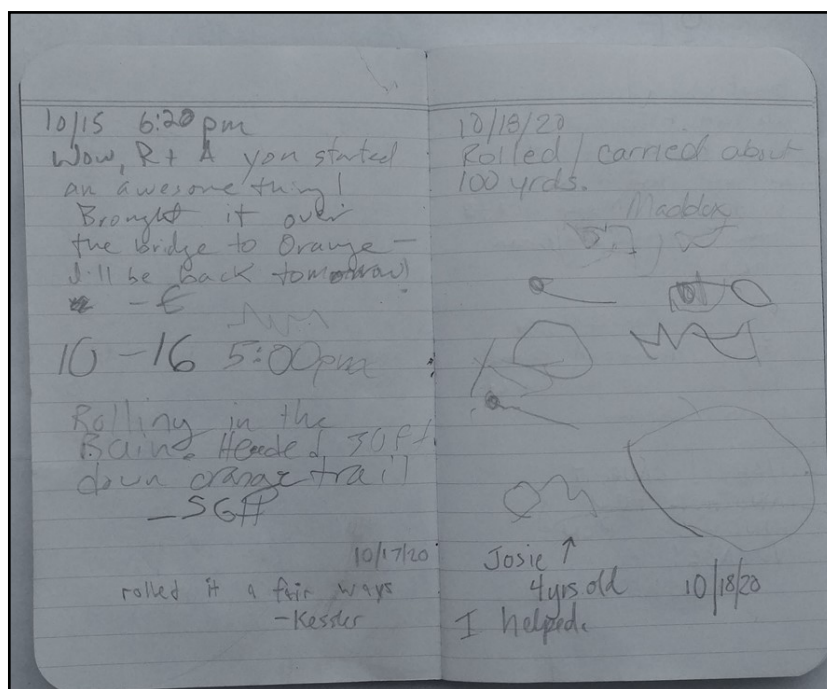 10/15 6:20 pm
Wow, R + A you started
an awesome thing!
Brought it over
the bridge to Orange –
I'll be back tomorrow!
– €
10 – 16 5:00pm
Rolling in the
Headed 30 ft
down orange trail
– SGH
10/17/20
rolled it a fair ways
– Kessler
10/18/20
Rolled / carried about
100 yrds.
Maddox
Josie ↑
4 yrs old 10/18/20
I helped.